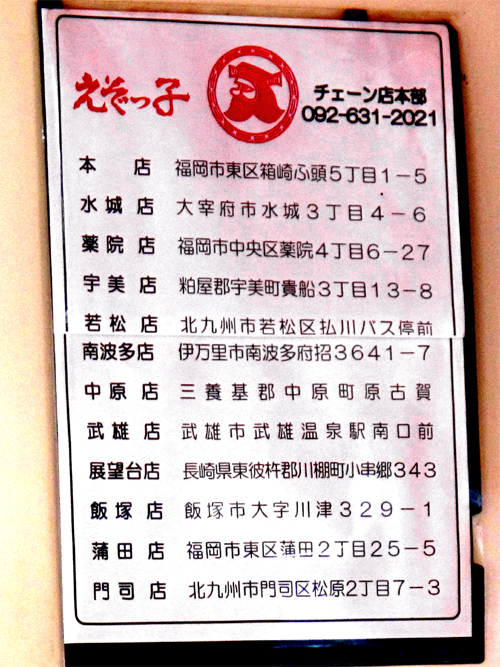 えぞっ子
チェーン店本部
092-631-2021
本店 福岡市東区箱崎ふ頭5丁目1-5
水城店 大宰府市水城3丁目4-6
薬院店 福岡市中央区薬院4丁目6-27
宇美店 粕屋郡宇美町貴船3丁目13-8
若松店 北九州市若松区払川バス停前
南波多店 伊万里市南波多府招3641-7
中原店 三養基郡中原町原古賀
武雄店 武雄市武雄温泉駅南口前
展望台店 長崎県東彼杵郡川棚町小串郷343
飯塚店 飯塚市大字川津329-1
蒲田店 福岡市東区蒲田2丁目25-5
門司店 北九州市門司区松原2丁目7-3